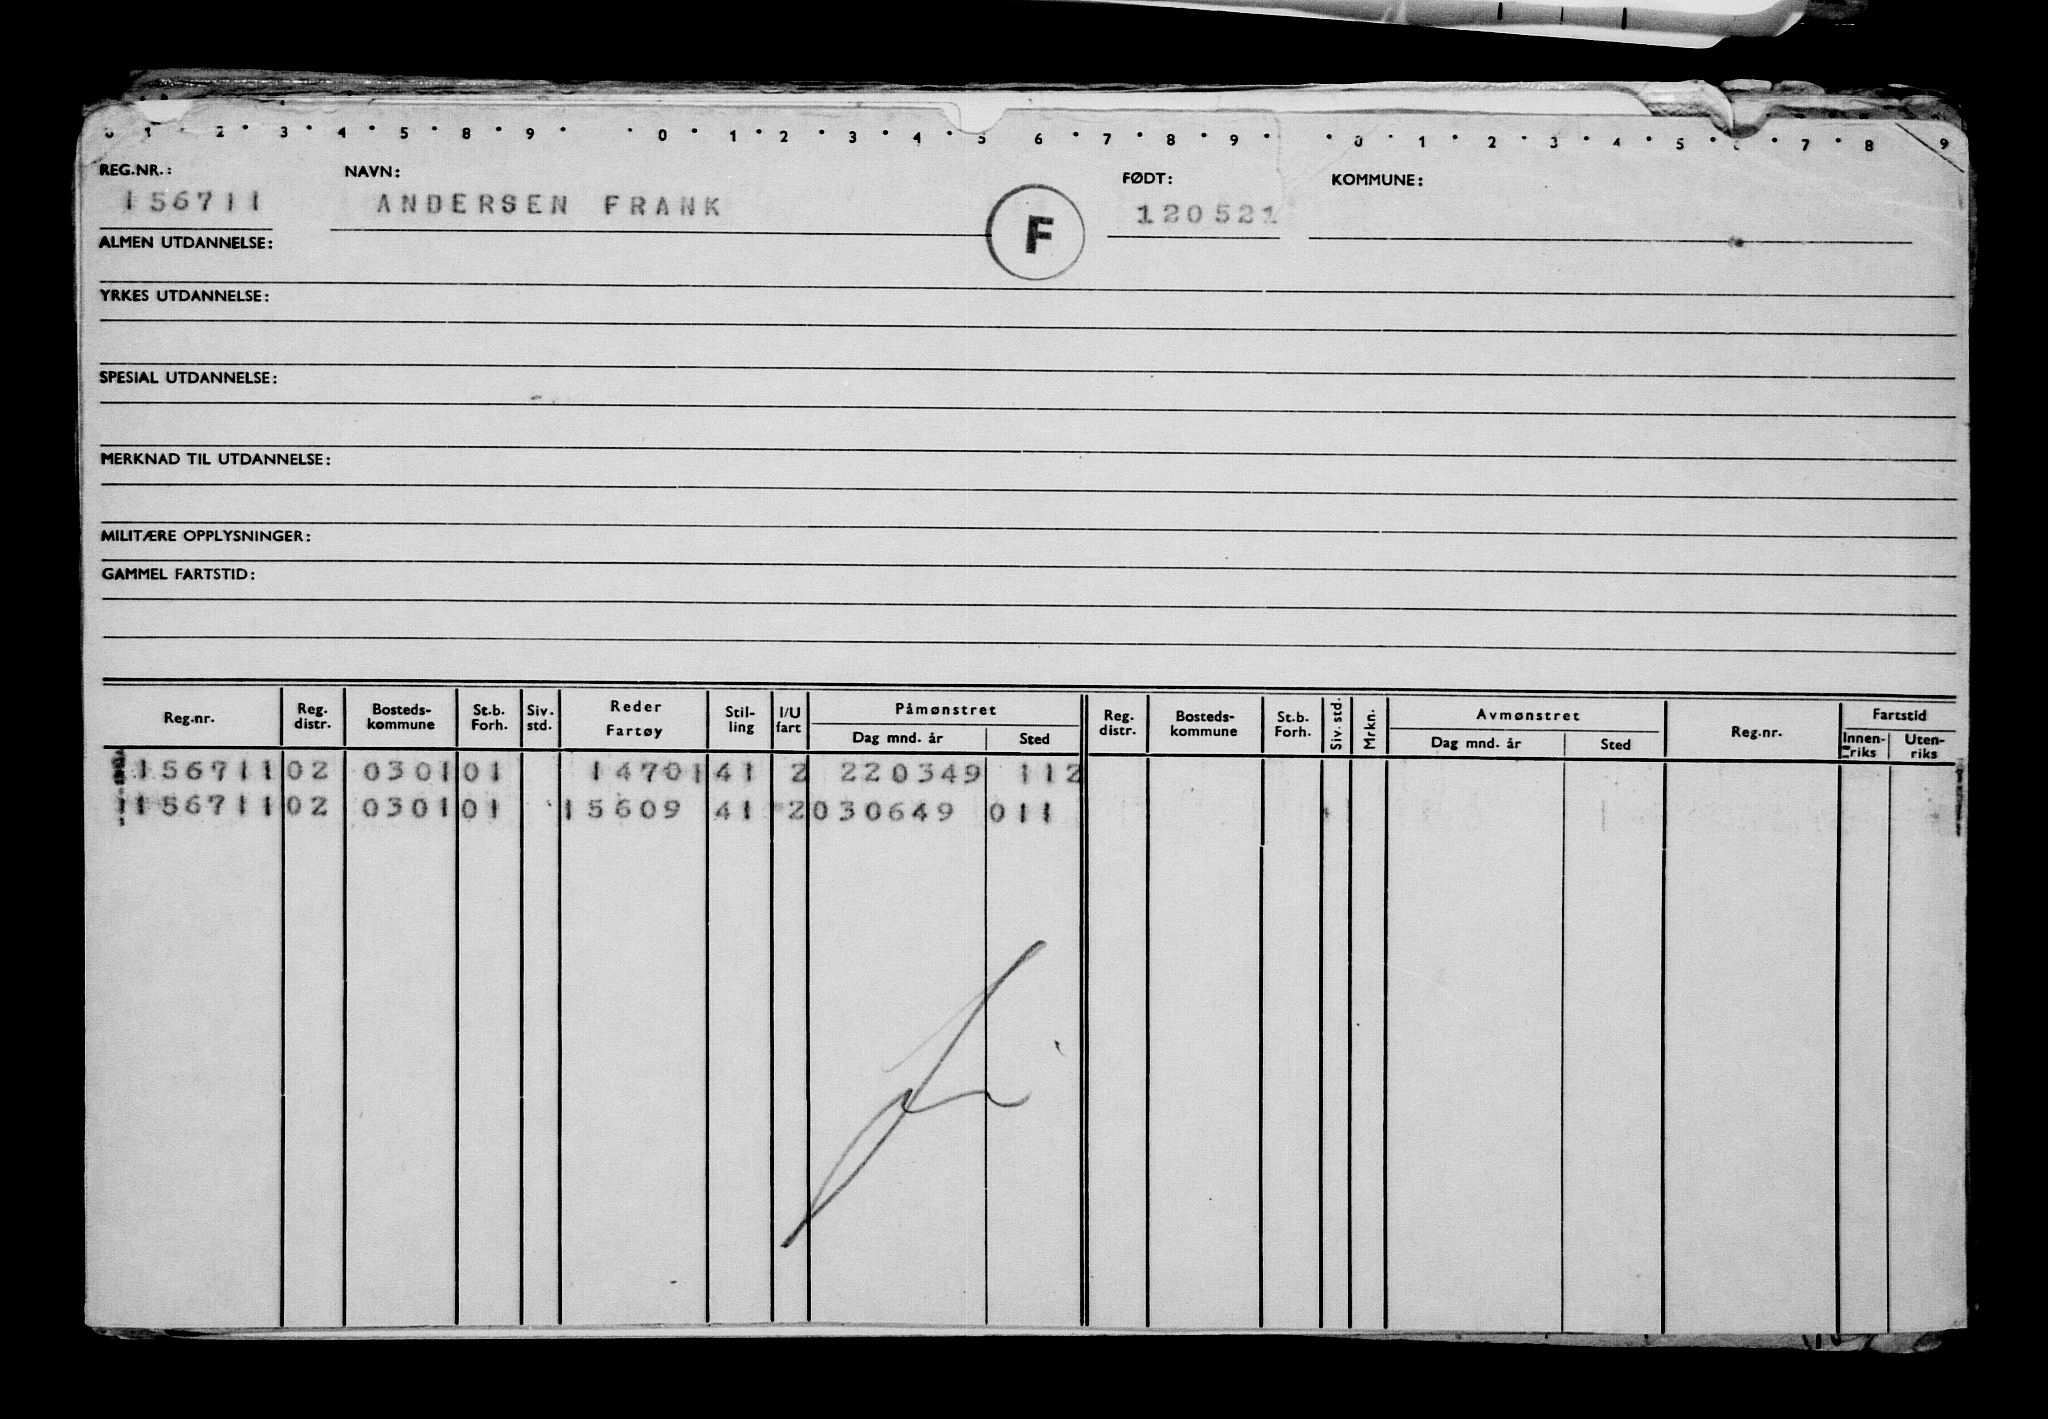 0 1 2 3 4 5 8 9 0 1 2 3 4 5 6 7 8 9 0 1 2 3 4 5 6 7 8 9
REG.NR.: NAVN: FØDT: KOMMUNE:
156711 ANDERSEN FRANK F 120521
ALMEN UTDANNELSE:
YRKES UTDANNELSE:
SPESIAL UTDANNELSE:
MERKNAD TIL UTDANNELSE:
MILITÆRE OPPLYSNINGER:
GAMMEL FARTSTID:
Reg.nr. Reg. distr. Bosteds- kommune St.b. Forh. Siv. std. Reder Fartøy Stil- ling I/U fart Påmønstret Dag mnd. år Sted Reg. distr. Bosteds- kommune St.b. Forh. Siv. std. Mrkn. Avmønstret Dag mnd. år Sted Reg.nr. Fartstid Innen- riks Uten- riks
156711 02 0301 01 14701 41 2 220349 112
156711 02 0301 01 15609 41 2 030649 011